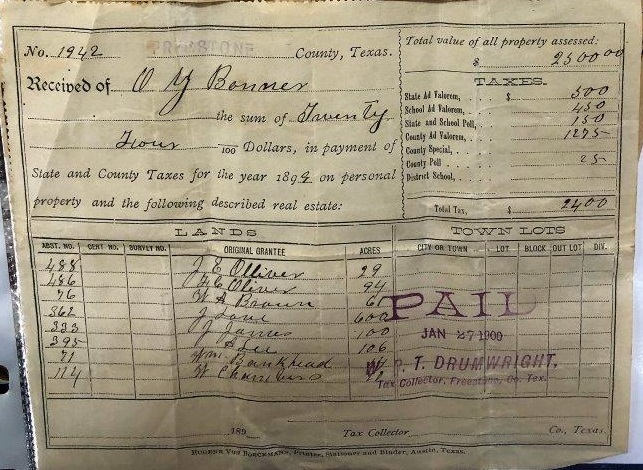 No. 1942 FREESTONE County, Texas.
Received of O Y Bonner
the sum of Twenty
Four /100 Dollars, in payment of
State and County Taxes for the year 1899 on personal
property and the following described real estate:
Total value of all property assessed:
$ 2500 00
TAXES.
State Ad Valorem, $ 500
School Ad Valorem, 450
State and School Poll, 150
County Ad Valorem, 1275
County Special,
County Poll 25
District School,
Total Tax, $ 2400
LANDS TOWN LOTS
ABST. NO. CERT NO. SURVEY NO. ORIGINAL GRANTEE ACRES CITY OR TOWN LOT BLOCK OUT LOT DIV.
488 J E Olliver 29
486 Oliver 94
76 W A Brown 61
362 J Lane 600
333 J James 100
395 Lee 106
71 Wm Bankhead
114 W Chambers
PAID
JAN 27 1900
W. P. T. DRUMWRIGHT,
Tax Collector, Freestone, Co. Tex.
189 Tax Collector Co., Texas.
EUGENE VON BOECKMANN, Printer, Stationer and Binder, Austin, Texas.